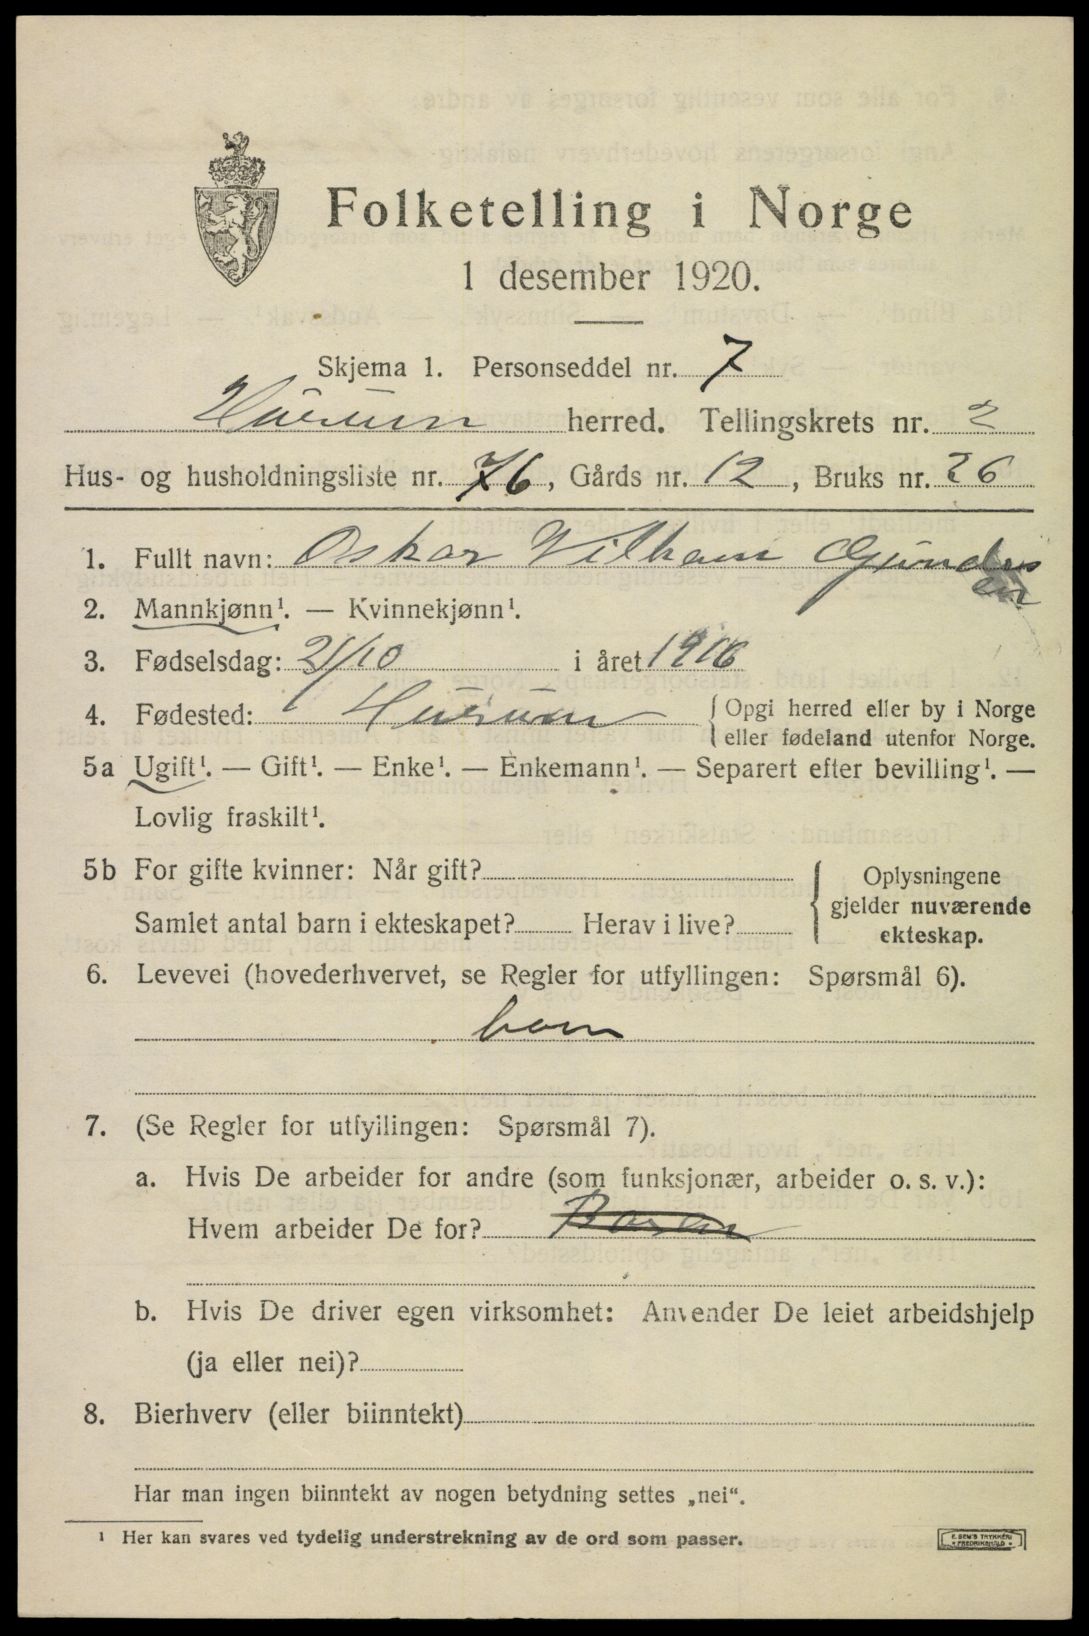 Folketelling i Norge
1 desember 1920.
Skjema 1. Personseddel nr. 7
Hurum herred. Tellingskrets nr. 2
Hus- og husholdningsliste nr. 76, Gårds nr. 12, Bruks nr. 26
1. Fullt navn: Oskar Vilhem Gundersen
2. Mannkjønn¹. — Kvinnekjønn¹.
3. Fødselsdag: 21/10 i året 1916
4. Fødested: Hurum {Opgi herred eller by i Norge
eller fødeland utenfor Norge.
5a Ugift¹. — Gift¹. — Enke¹. — Enkemann¹. — Separert efter bevilling¹. —
Lovlig fraskilt¹.
5b For gifte kvinner: Når gift? { Oplysningene
gjelder nuværende
Samlet antal barn i ekteskapet? Herav i live? ekteskap.
6. Levevei (hovederhvervet, se Regler for utfyllingen: Spørsmål 6).
barn
7. (Se Regler for utfyllingen: Spørsmål 7).
a. Hvis De arbeider for andre (som funksjonær, arbeider o. s. v.):
Hvem arbeider De for?
b. Hvis De driver egen virksomhet: Anvender De leiet arbeidshjelp
(ja eller nei)?
8. Bierhverv (eller biinntekt)
Har man ingen biinntekt av nogen betydning settes „nei“.
¹ Her kan svares ved tydelig understrekning av de ord som passer.
E. SEM'S TRYKKERI
FREDRIKSHALD